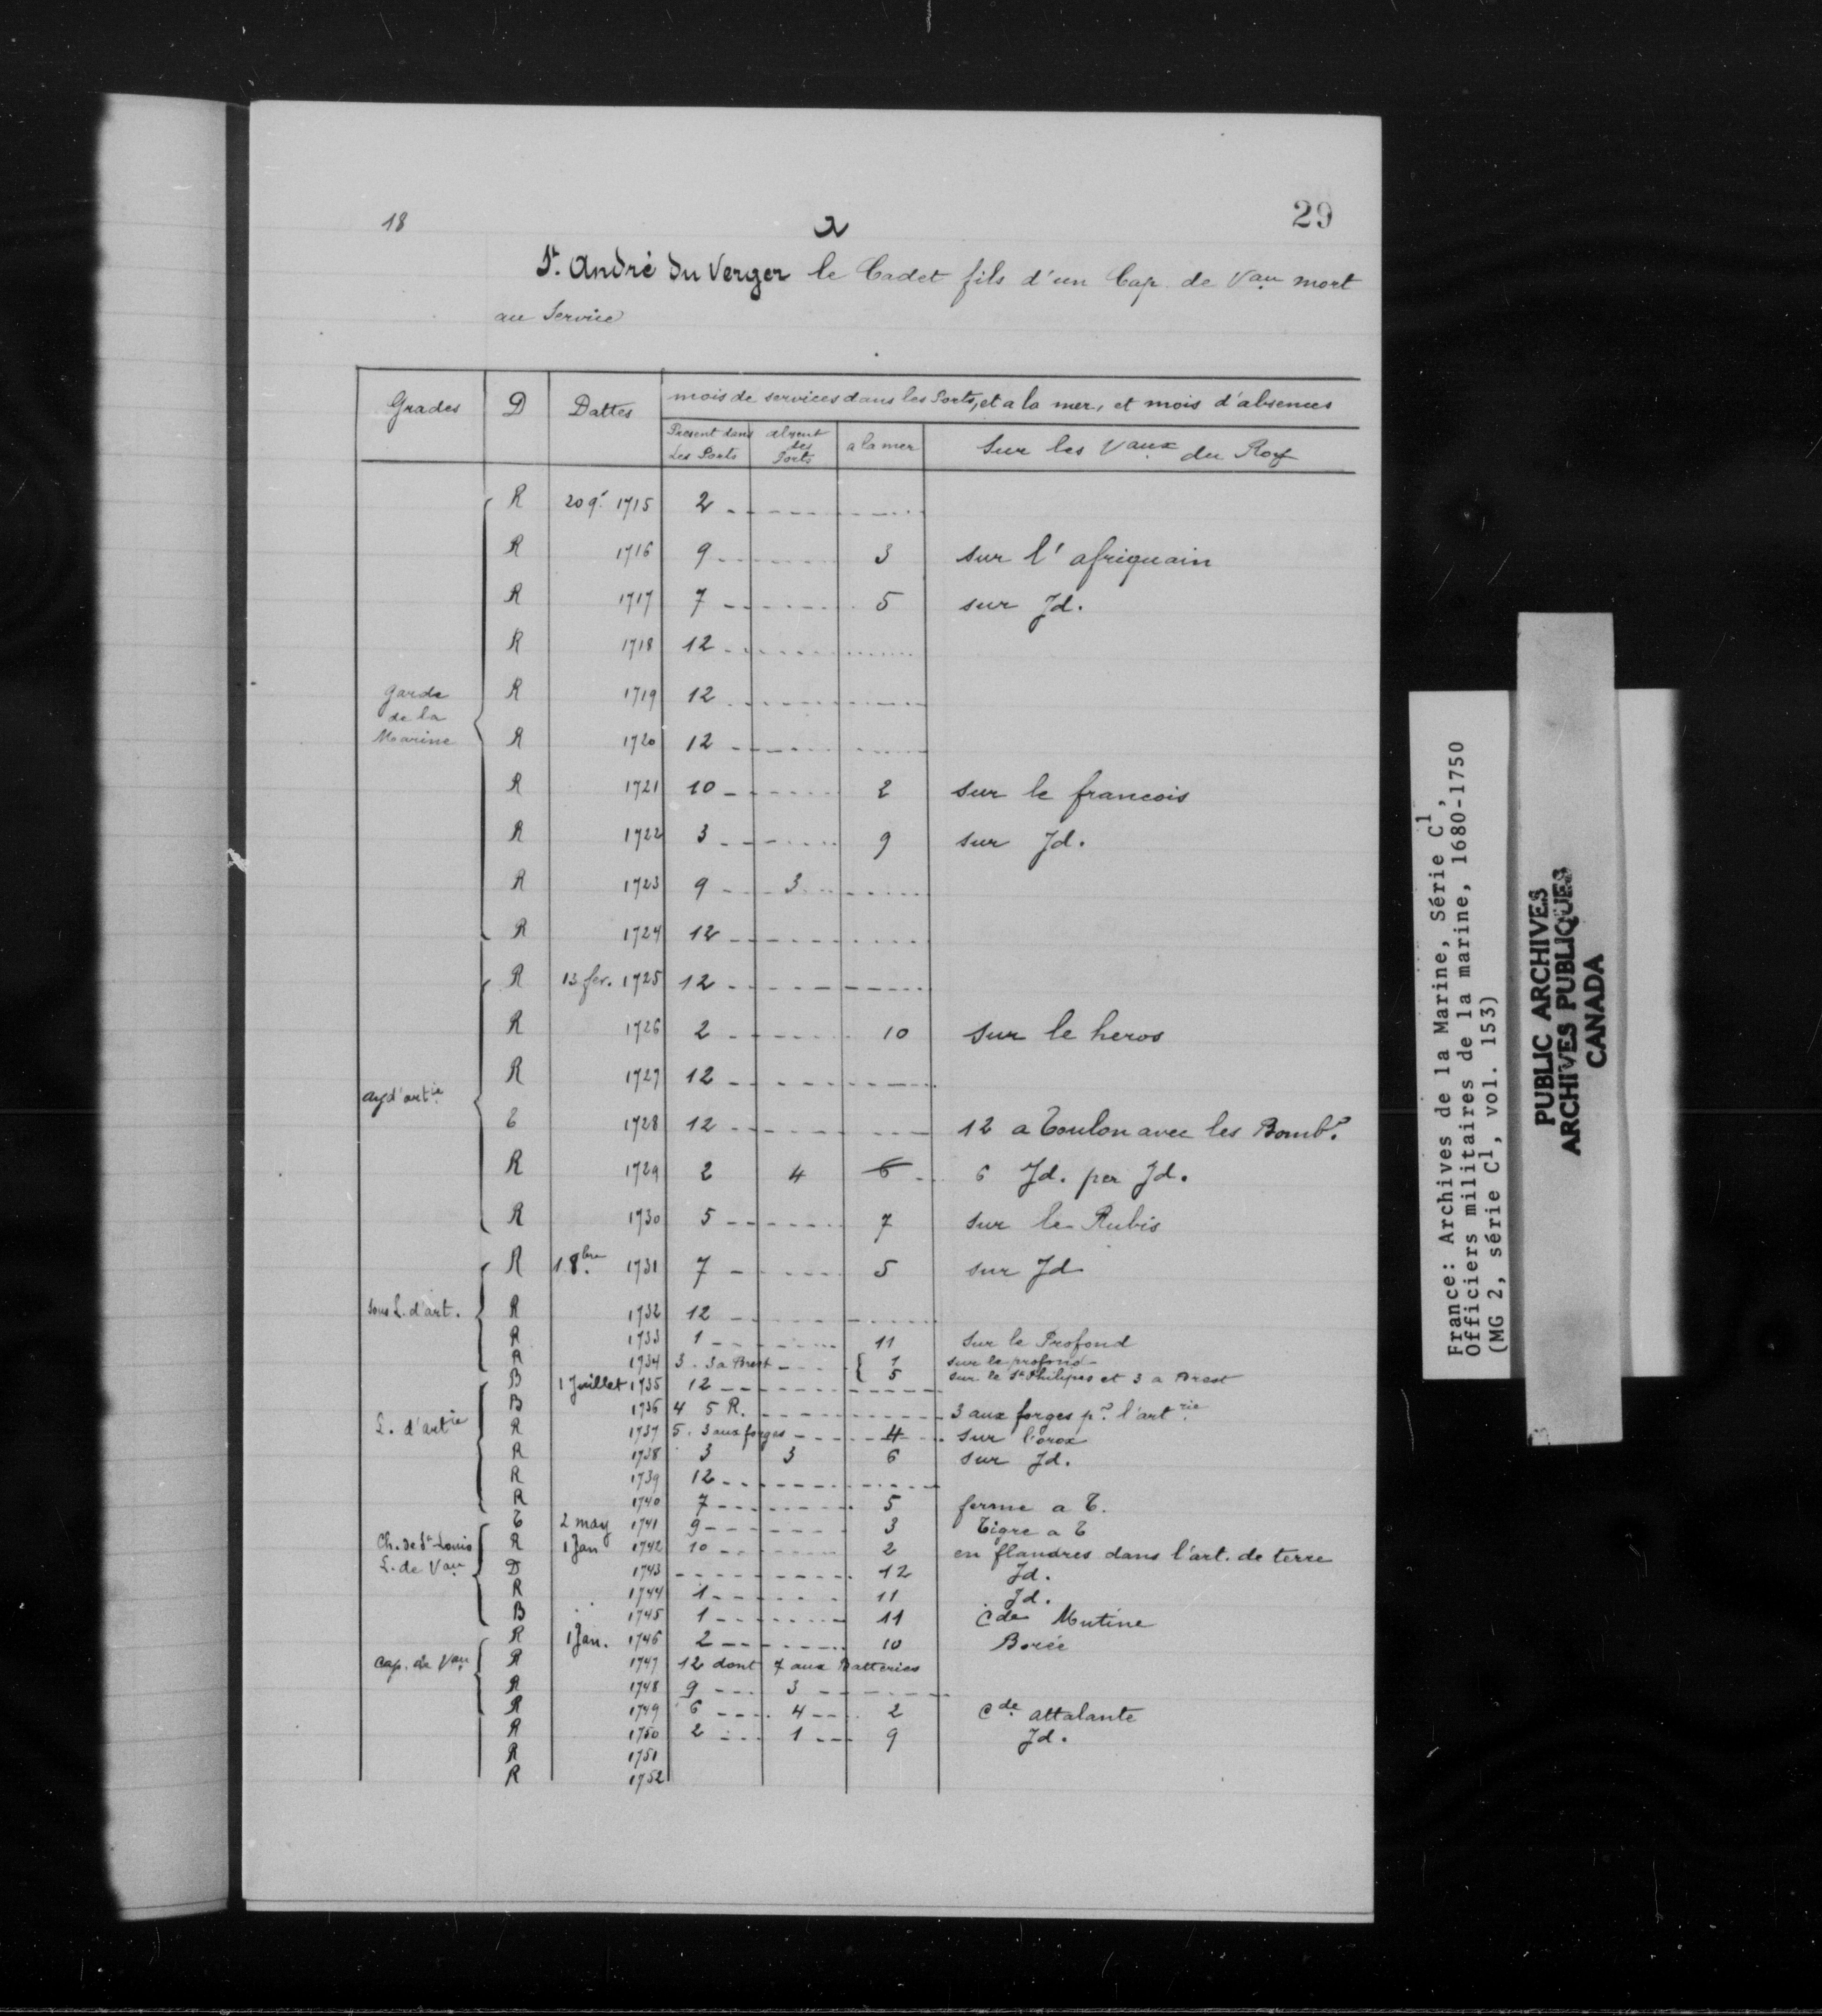 18
29
St. André du Verger le Cadet fils d'un Cap. de Vau mort
au Service
Grades D Dattes mois de services dans les Ports, et a la mer, et mois d'absences
Present dans les Ports absent des Ports a la mer Sur les Vaux du Roy
R 20 9r. 1715 2
R 1716 9 3 sur l'afriquain
R 1717 7 5 sur Jd.
R 1718 12
garde de la Marine R 1719 12
R 1720 12
R 1721 10 2 sur le francois
R 1722 3 9 sur Jd.
R 1723 9 3
R 1724 12
R 13 fev. 1725 12
R 1726 2 10 sur le heros
R 1727 12
ayd'artie T 1728 12 12 a Toulon avec les Bombs.
R 1729 2 4 6 6 Jd. per Jd.
R 1730 5 7 sur le Rubis
R 1 8bre 1731 7 5 sur Jd
sous L. d'art. R 1732 12
R 1733 1 11 Sur le Profond
R 1734 3. 3 a Brest 1 sur le profond
5 sur le St Philipes et 3 a Brest
B 1 Juillet 1735 12
B 1736 4 5 R. 3 aux forges pr. l'artrie
L. d'artie R 1737 5. 3 aux forges 4 sur borox
R 1738 3 3 6 sur Jd.
R 1739 12
R 1740 7 5 ferme a T.
T 2 may 1741 9 3 Tigre a T
Ch. de St Louis R 1 Jan 1742 10 2 en flandres dans l'art. de terre
L. de Vau D 1743 12 Jd.
R 1744 1 11 Jd.
B 1745 1 11 Cde Mutine
R 1 Jan. 1746 2 10 Borée
Cap. de Vau R 1747 12 dont 7 aux Batteries
R 1748 9 3
R 1749 6 4 2 Cde attalante
R 1750 2 1 9 Jd.
R 1751
R 1752
France: Archives de la Marine, Série C1,
Officiers militaires de la marine, 1680-1750
(MG 2, série C1, vol. 153)
PUBLIC ARCHIVES
ARCHIVES PUBLIQUES
CANADA